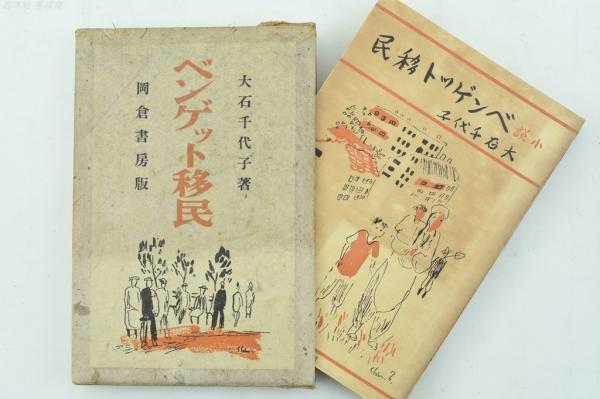 大石千代子著
ベンゲット移民
岡倉書房版
民移トッゲンベ
小説
子代千石大